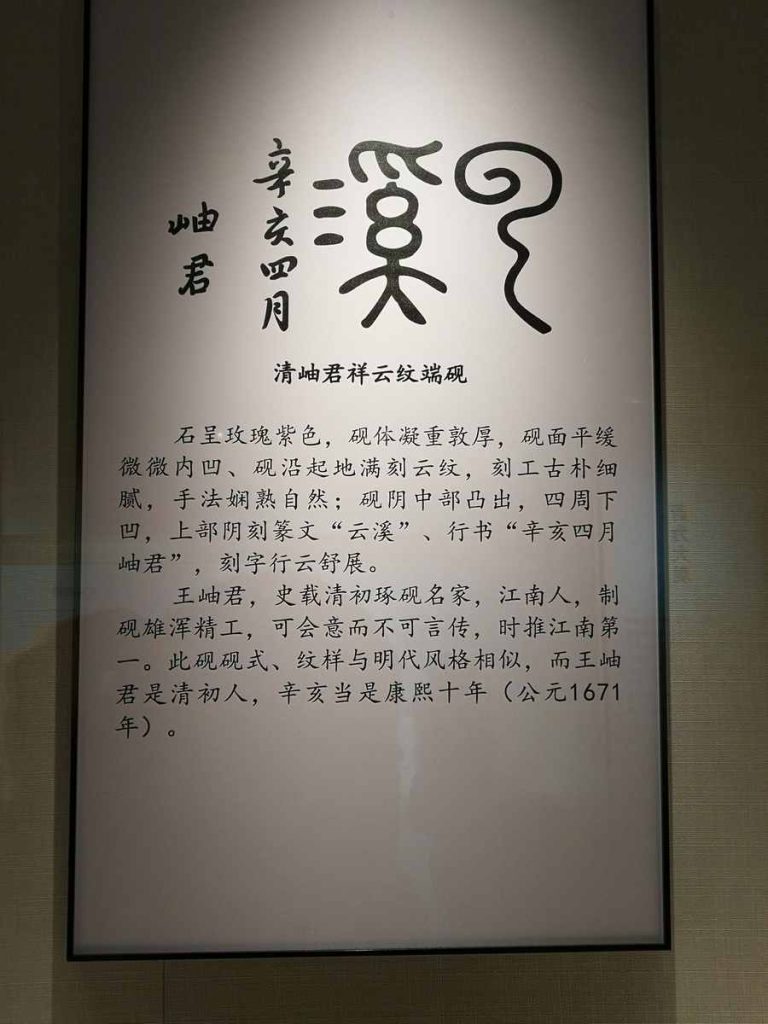 云溪
辛亥四月
岫君
清岫君祥云纹端砚
石呈玫瑰紫色，砚体凝重敦厚，砚面平缓
微微内凹、砚沿起地满刻云纹，刻工古朴细
腻，手法娴熟自然；砚阴中部凸出，四周下
凹，上部阴刻篆文“云溪”、行书“辛亥四月
岫君”，刻字行云舒展。
王岫君，史载清初琢砚名家，江南人，制
砚雄浑精工，可会意而不可言传，时推江南第
一。此砚砚式、纹样与明代风格相似，而王岫
君是清初人，辛亥当是康熙十年（公元1671
年）。